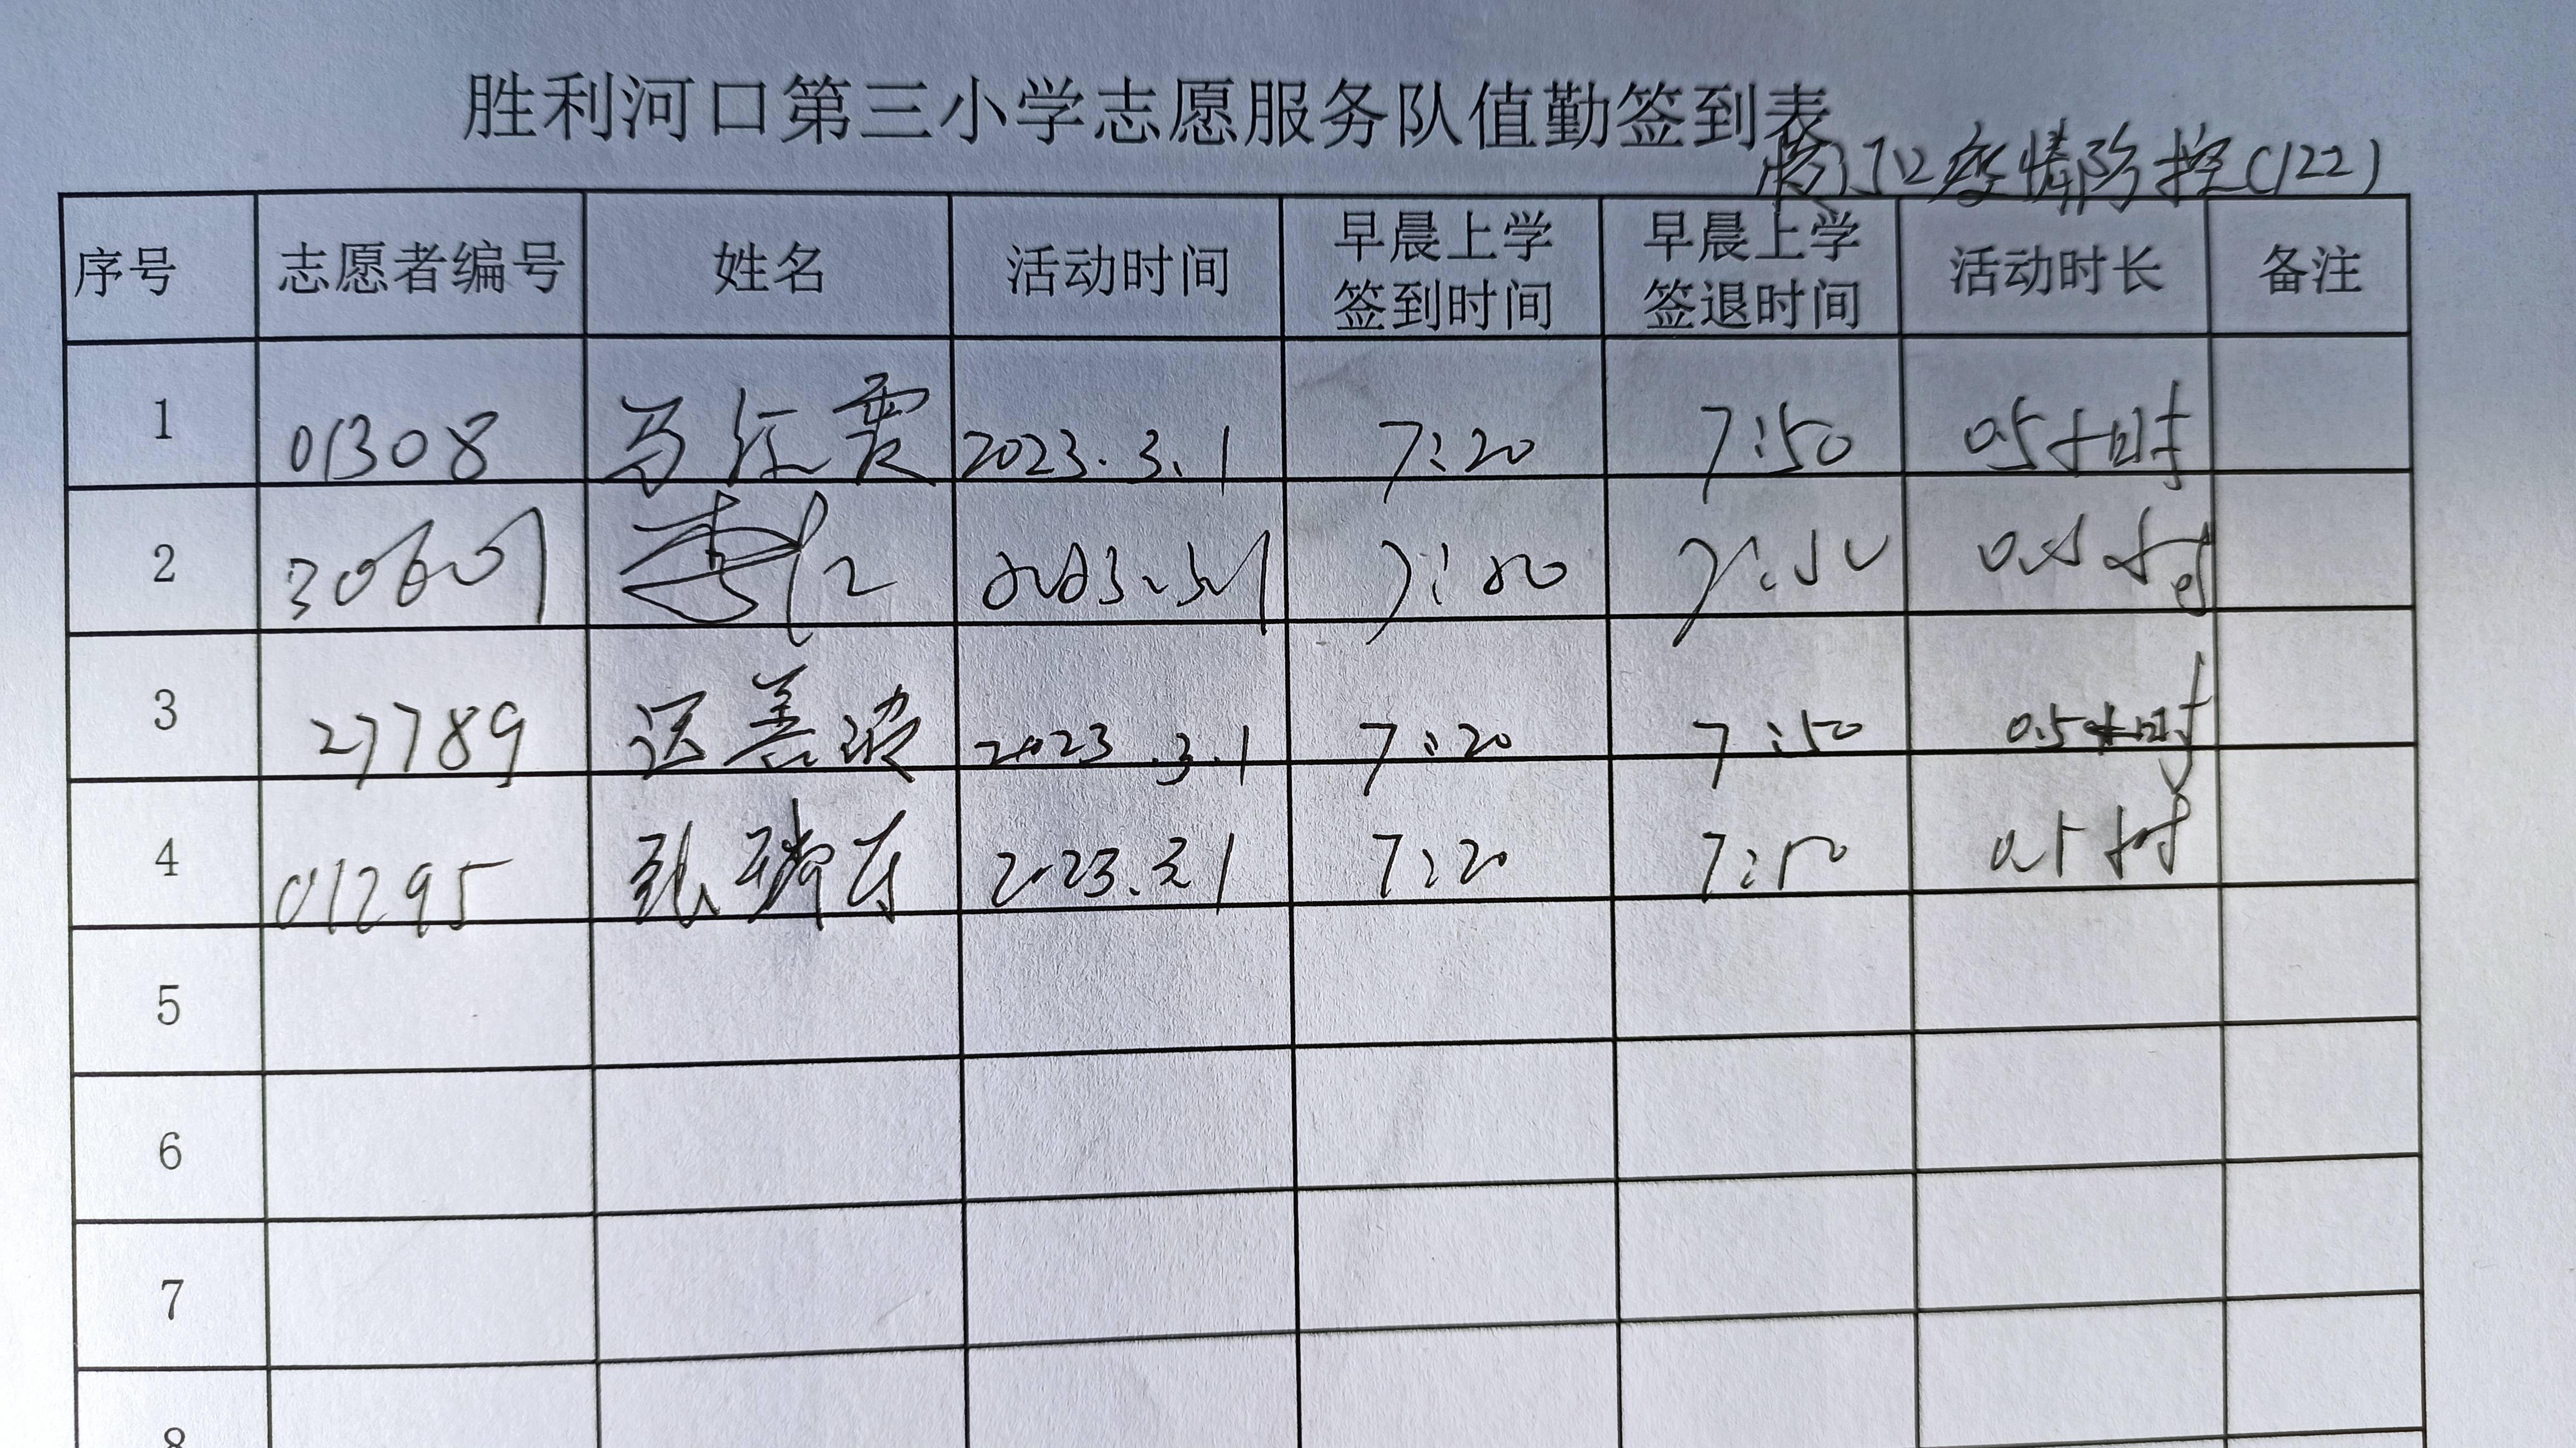 胜利河口第三小学志愿服务队值勤签到表
疫情防控(122)
序号 志愿者编号 姓名 活动时间 早晨上学签到时间 早晨上学签退时间 活动时长 备注
1 01308 马红霞 2023.3.1 7:20 7:50 0.5小时
2 30607 2023.3.1 7:20 7:50 0.5小时
3 27789 2023.3.1 7:20 7:50 0.5小时
4 01295 2023.3.1 7:20 7:50 0.5小时
5
6
7
8